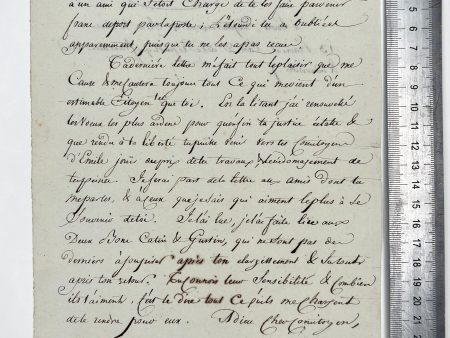 a un ami qui s'etoit Chargé de te les faire parvenir
franc de port par la poste; l'étourdi les a oubliées
apparemment, puisque tu ne les a pas reçues.
Ta derniere lettre m'a fait tout le plaisir que me
Cause & me causera toujours tout Ce qui me vient d'un
estimable Citoyen tel que toi. En la lisant j'ai renouvelé
les voeux les plus ardens pour qu'enfin ta justice éclate & que
rendu à la liberté tu puisse venir vers tes Concitoyens
jouir auprès de tes travaux & dédommagement de
tes peines. Je ferai part de ta lettre aux amis dont tu
me parles, & à ceux que je sais qui aiment le plus à se
Souvenir de toi. Je l'ai lue, je l'ai faite lire aux
Deux Bone Catin & Guston, qui ne sont pas des
derniers à soupirer après ton elargissement & surtout
après ton retour. Tu Connois leur Sensibilité & Combien
ils t'aiment. C'est te dire tout Ce qu'ils me Chargent
de te rendre pour eux. Adieu Cher Concitoyen,
9 10 11 12 13 14 15 16 17 18 19 20 21 22